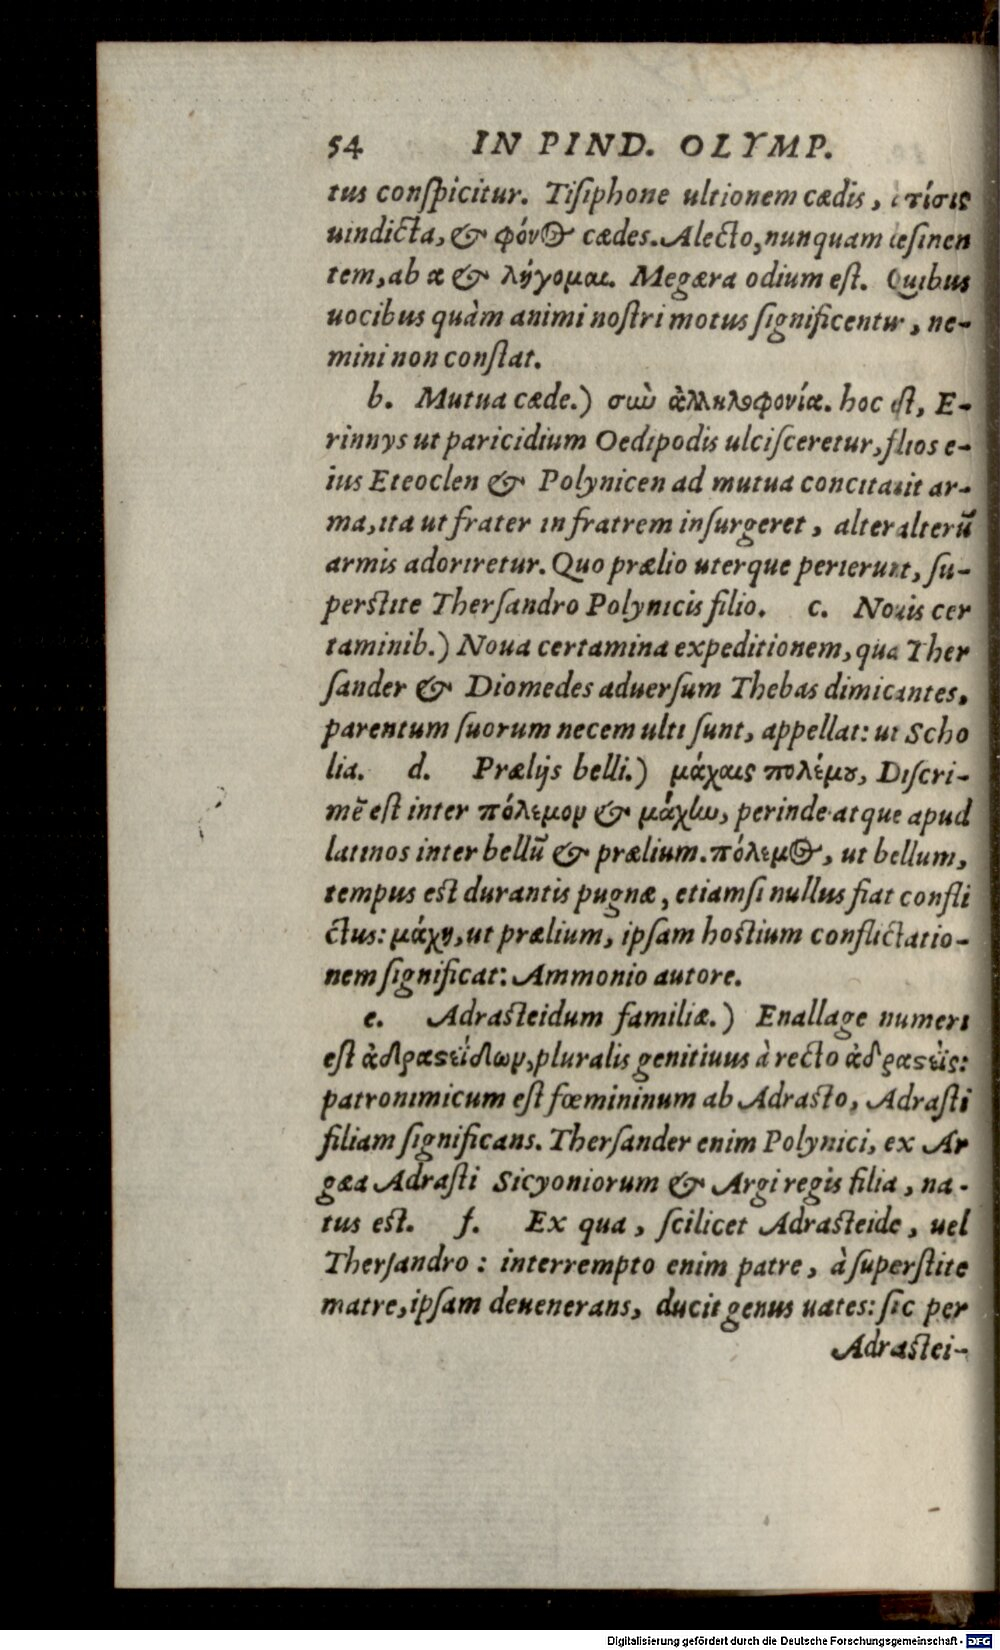 54 IN PIND. OLYMP.
tus conſpicitur. Tiſiphone ultionem cædis, à τίσις
uindicta, & φόν⊙ cædes. Alecto, nunquam deſinen
tem, ab α & λήγομαι. Megæra odium eſt. Quibus
uocibus quàm animi noſtri motus ſignificentur, ne-
mini non conſtat.
b. Mutua cæde.) σὺν ἀλληλοφονίᾳ. hoc eſt, E-
rinnys ut paricidium Oedipodis ulciſceretur, filios e-
ius Eteoclen & Polynicen ad mutua concitauit ar-
ma, ita ut frater in fratrem inſurgeret, alter alterũ
armis adoriretur. Quo prælio uterque perierunt, ſu-
perſtite Therſandro Polynicis filio. c. Nouis cer
taminib.) Noua certamina expeditionem, qua Ther
ſander & Diomedes aduerſum Thebas dimicantes,
parentum ſuorum necem ulti ſunt, appellat: ut Scho
lia. d. Prælijs belli.) μάχαις πολέμου, Diſcri-
mẽ eſt inter πόλεμον & μάχην, perinde atque apud
latinos inter bellũ & prælium. πόλεμ⊙, ut bellum,
tempus eſt durantis pugnæ, etiamſi nullus fiat confli
ctus: μάχη, ut prælium, ipſam hoſtium conflictatio-
nem ſignificat: Ammonio autore.
e. Adraſteidum familiæ.) Enallage numeri
eſt ἀδραστεΐδων, pluralis genitiuus à recto ἀδραστεῒς:
patronimicum eſt fœmininum ab Adraſto, Adraſti
filiam ſignificans. Therſander enim Polynici, ex Ar
gæa Adraſti Sicyoniorum & Argi regis filia, na-
tus eſt. f. Ex qua, ſcilicet Adraſteide, uel
Therſandro: interrempto enim patre, à ſuperſtite
matre, ipſam deuenerans, ducit genus uates: ſic per
Adraſtei-
Digitalisierung gefördert durch die Deutsche Forschungsgemeinschaft - DFG